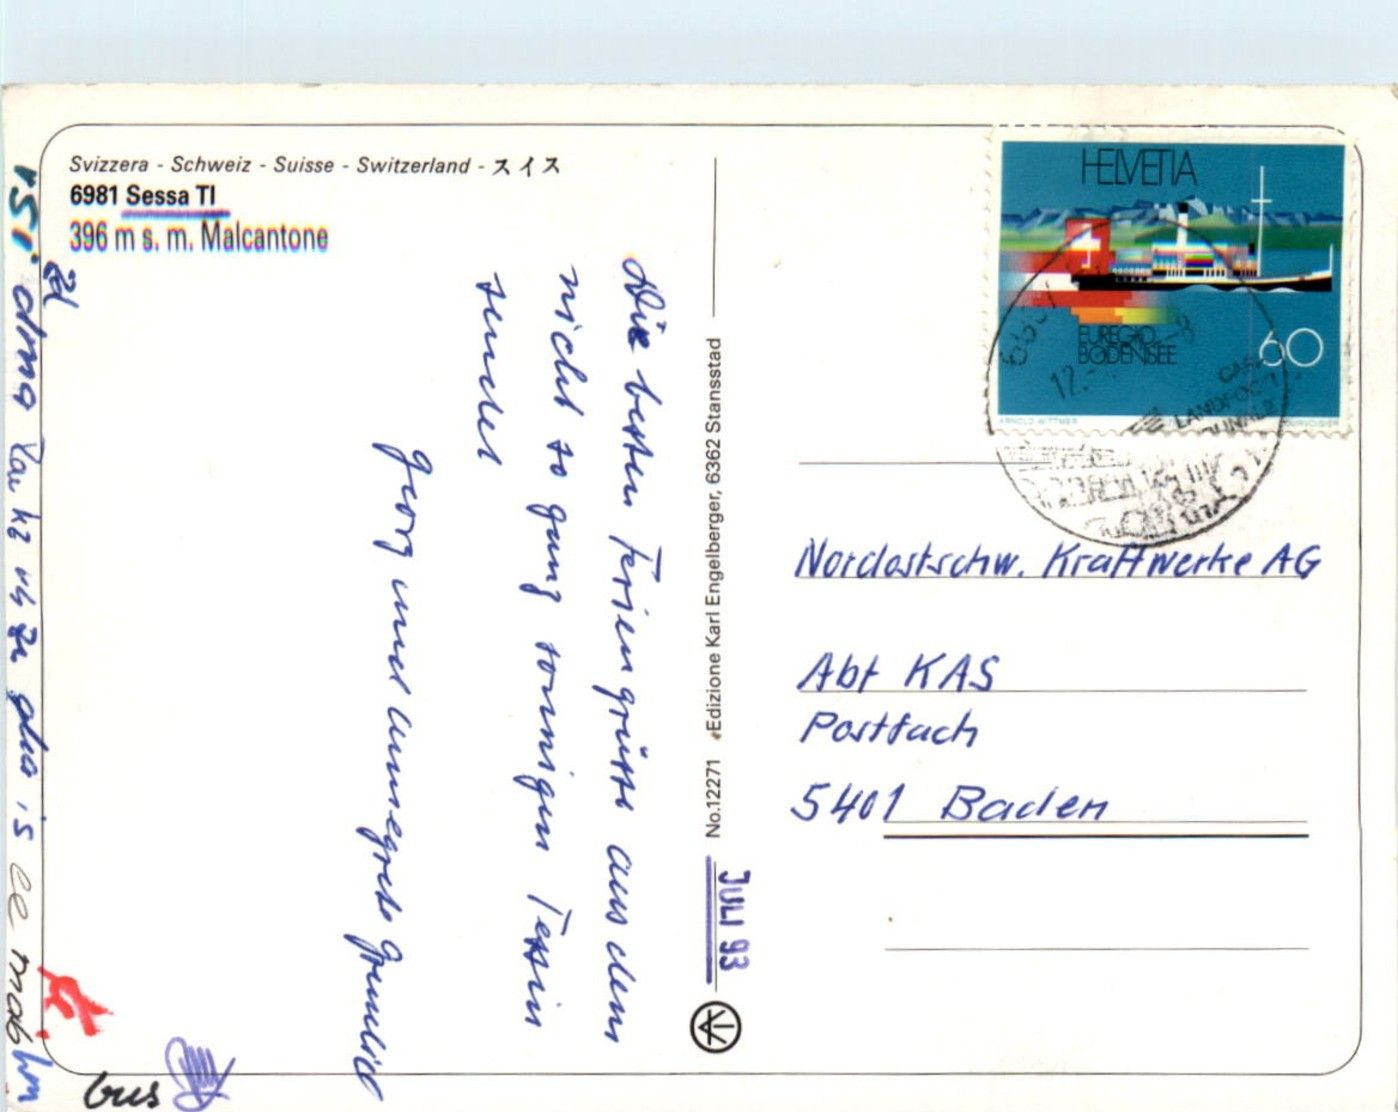 Svizzera - Schweiz - Suisse - Switzerland - スイス
6981 Sessa TI
396 m s. m. Malcantone
Die besten Feriengrüsse aus dem
nicht so ganz sonnigen Tessin
senden
Georg und Annegrete
No.12271 Edizione Karl Engelberger, 6362 Stansstad
JULI 93
HELVETIA
EUREGIO
BODENSEE
60
ARNOLD WITTMER
COURVOISIER
12.
Nordostschw. Kraftwerke AG
Abt KAS
Postfach
5401 Baden
bus